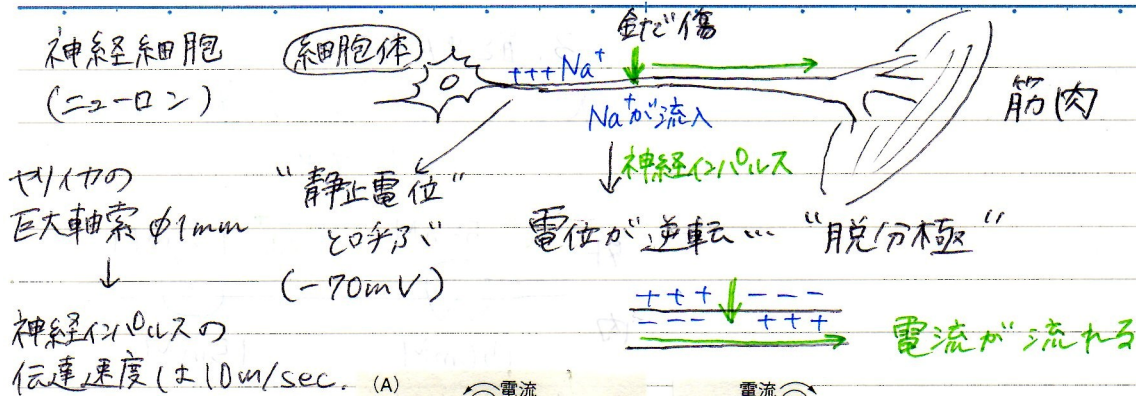 神経細胞
(ニューロン)
細胞体
+++Na⁺
針で傷
Na⁺が流入
神経インパルス
筋肉
ヤリイカの
巨大軸索 φ1mm
↓
神経インパルスの
伝達速度は10m/sec.
"静止電位"
と呼ぶ
(-70mV)
電位が逆転… "脱分極"
+++ ---
--- +++
電流が流れる
(A)
電流
電流